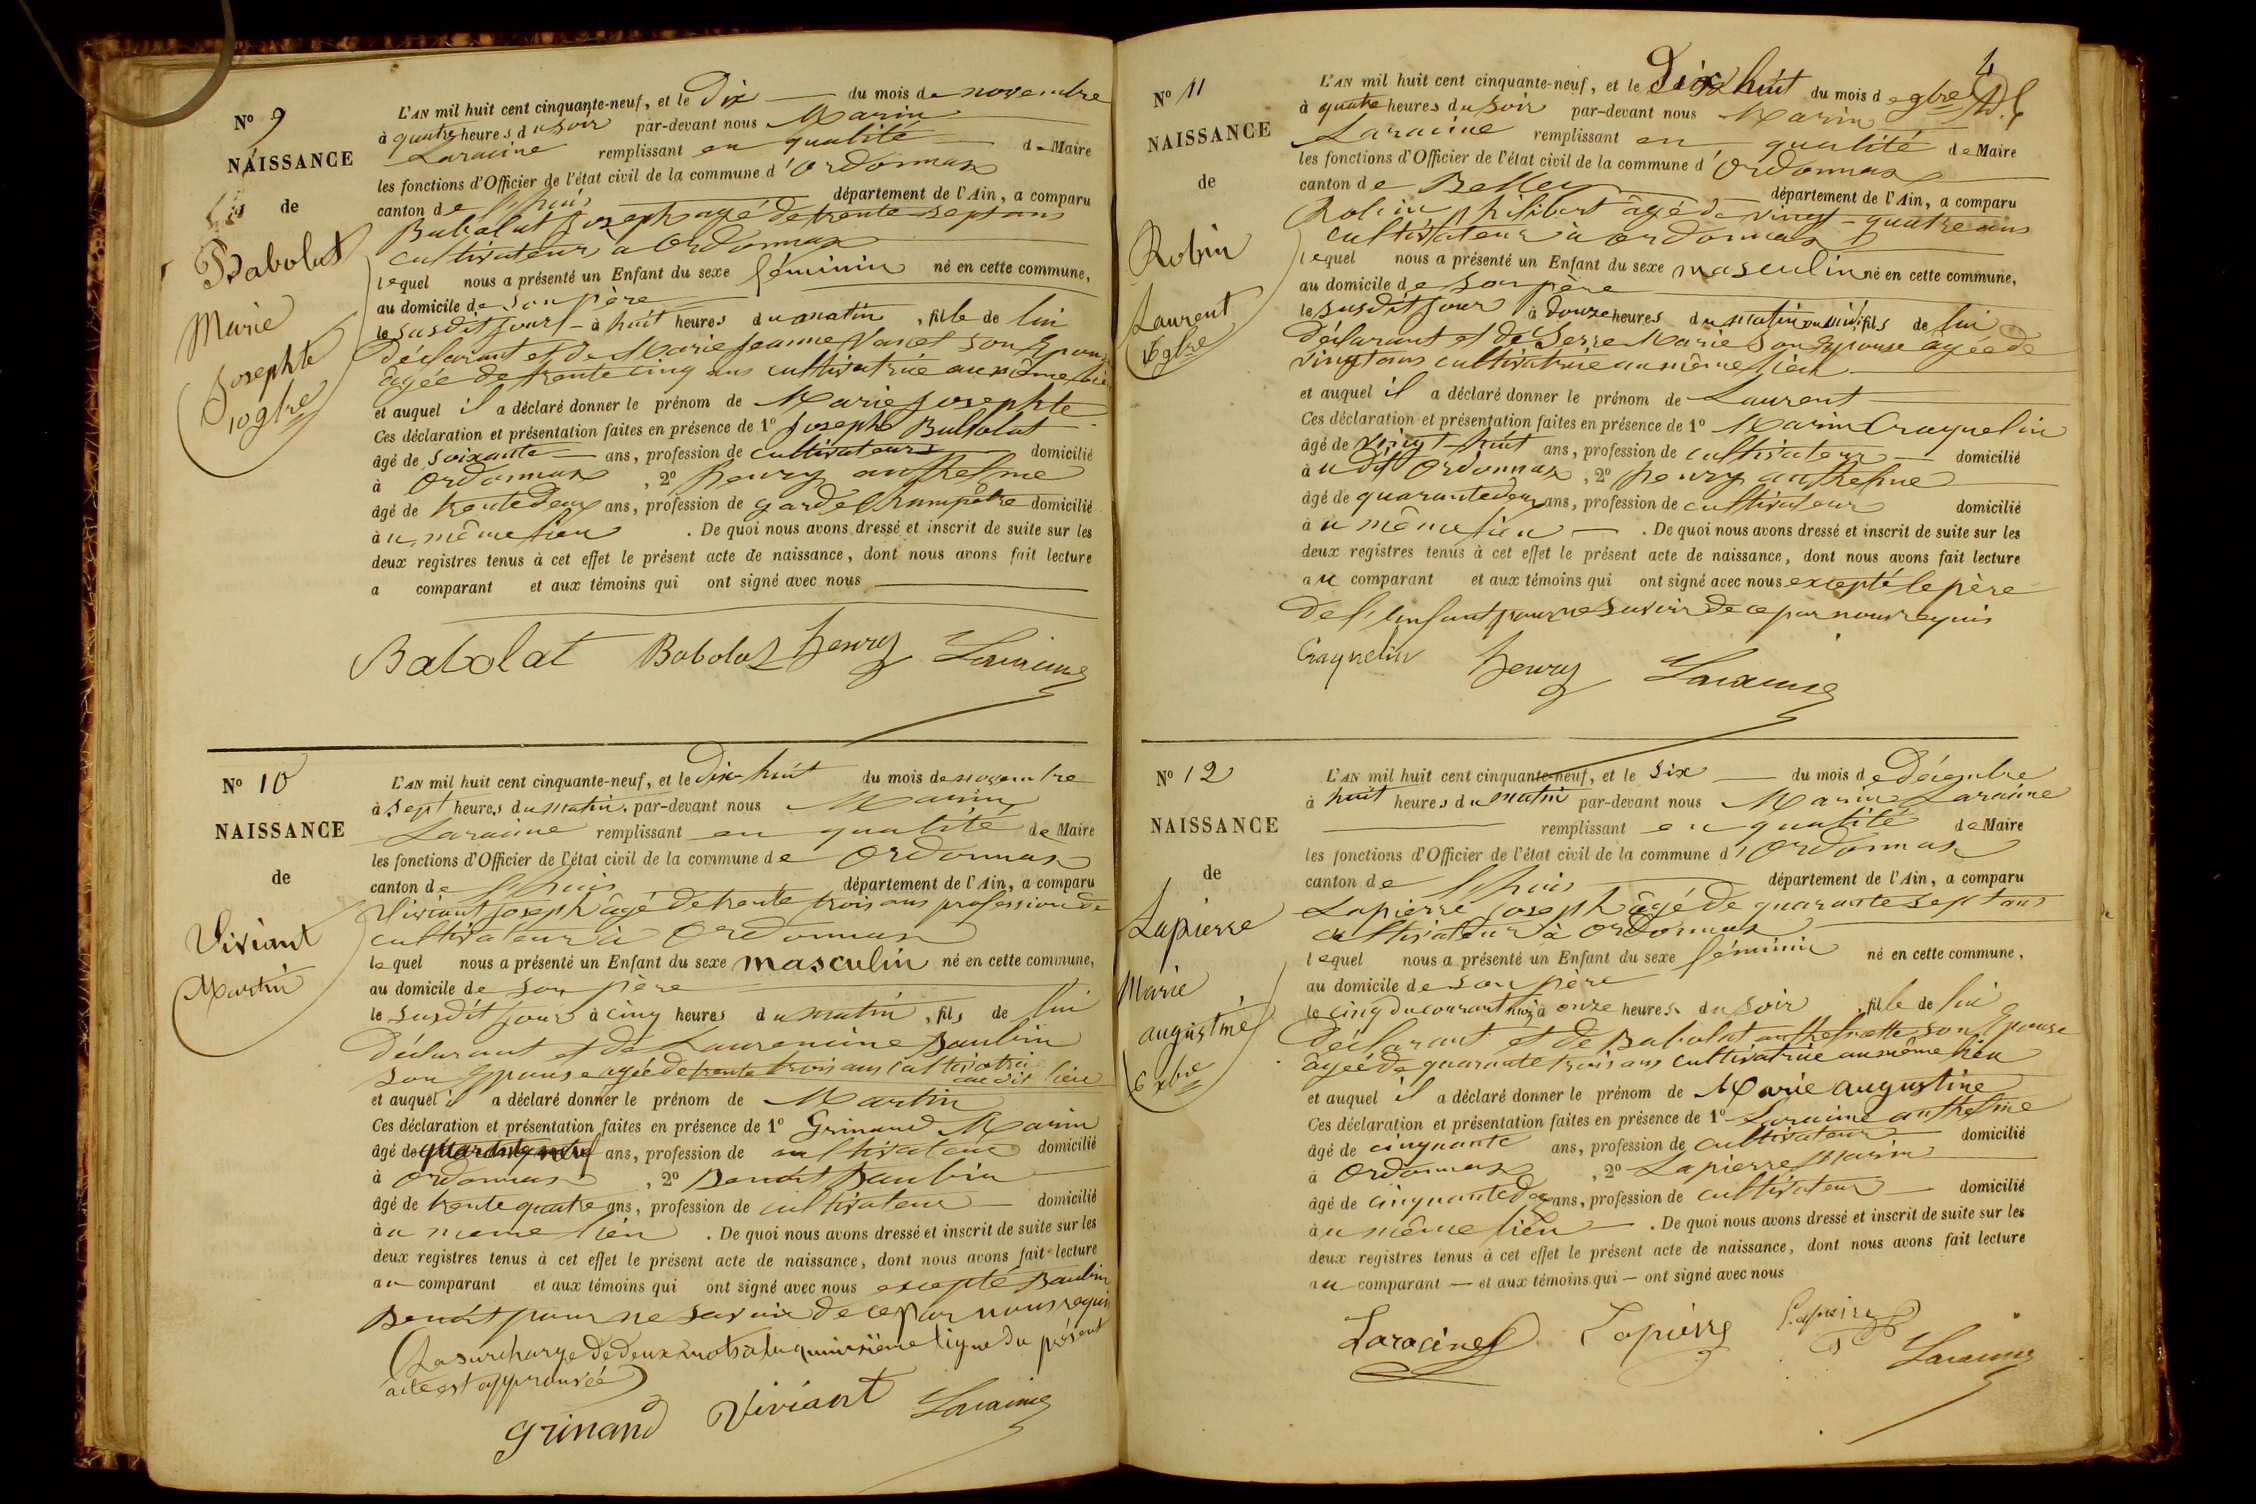 N° 9
NAISSANCE
de
Babolat
Marie
Josephte
10 9bre
L'AN mil huit cent cinquante-neuf, et le Dix du mois de novembre
à quatre heures du soir par-devant nous Marin
Laracine remplissant en qualité de Maire
les fonctions d'Officier de l'état civil de la commune d'Ordonnax
canton de l'huis département de l'Ain, a comparu
Babolat Joseph agé de trente sept ans
cultivateur à Ordonnax
lequel nous a présenté un Enfant du sexe féminin né en cette commune,
au domicile de son père
le susdit jour à huit heures du matin, fille de lui
déclarant et de Marie Jeanne Varret son Epouse
agée de trente cinq ans cultivatrice au même lieu
et auquel il a déclaré donner le prénom de Marie Josephte
Ces déclaration et présentation faites en présence de 1° Joseph Babolat
âgé de soixante ans, profession de cultivateur domicilié
à Ordonnax, 2° henry anthelme
âgé de trente deux ans, profession de garde champêtre domicilié
au même lieu. De quoi nous avons dressé et inscrit de suite sur les
deux registres tenus à cet effet le présent acte de naissance, dont nous avons fait lecture
a comparant et aux témoins qui ont signé avec nous
Babolat Babolat henry Laracine
N° 10
NAISSANCE
de
Viviant
Martin
L'AN mil huit cent cinquante-neuf, et le Dix-huit du mois de novembre
à sept heures du matin par-devant nous Marin
Laracine remplissant en qualité de Maire
les fonctions d'Officier de l'état civil de la commune de Ordonnax
canton de l'huis département de l'Ain, a comparu
Viviant Joseph âgé de trente trois ans profession de
cultivateur à Ordonnax
lequel nous a présenté un Enfant du sexe masculin né en cette commune,
au domicile de son père
le susdit jour à cinq heures du matin, fils de lui
Déclarant et de Laurencine Baubin
son Epouse agée de trente trois ans cultivatrice
au dit lieu
et auquel il a déclaré donner le prénom de Martin
Ces déclaration et présentation faites en présence de 1° Grinand Marin
âgé de quarante neuf ans, profession de cultivateur domicilié
à Ordonnax, 2° Benoit Baubin
âgé de trente quatre ans, profession de cultivateur domicilié
au meme lieu. De quoi nous avons dressé et inscrit de suite sur les
deux registres tenus à cet effet le présent acte de naissance, dont nous avons fait lecture
au comparant et aux témoins qui ont signé avec nous excepté Baubin
Benoit pour ne savoir de ce par nous requis
(La surcharge de deux mots à la quinzième ligne du présent
acte est approuvée)
Grinand Viviant Laracine
N° 11
NAISSANCE
de
Robin
Laurent
18 9bre
L'AN mil huit cent cinquante-neuf, et le Dix huit du mois d 9bre
à quatre heures du soir par-devant nous Marin
Laracine remplissant en qualité de Maire
les fonctions d'Officier de l'état civil de la commune d'Ordonnax
canton de Belley département de l'Ain, a comparu
Robin philibert âgé de vingt-quatre ans
cultivateur à Ordonnax
lequel nous a présenté un Enfant du sexe masculin né en cette commune,
au domicile de son père
le susdit jour à douze heures du matin ou midi, fils de lui
Déclarant et de Serre Marie son Epouse agée de
vingt ans cultivatrice au même lieu
et auquel il a déclaré donner le prénom de Laurent
Ces déclaration et présentation faites en présence de 1° Marin Craquelin
âgé de vingt-huit ans, profession de cultivateur domicilié
au dit Ordonnax, 2° henry anthelme
âgé de quarante deux ans, profession de cultivateur domicilié
au même lieu. De quoi nous avons dressé et inscrit de suite sur les
deux registres tenus à cet effet le présent acte de naissance, dont nous avons fait lecture
au comparant et aux témoins qui ont signé avec nous excepté le père
de l'Enfant pour ne savoir de ce par nous requis
Craquelin henry Laracine
N° 12
NAISSANCE
de
Lapierre
Marie
augustine
6 xbre
L'AN mil huit cent cinquante-neuf, et le six du mois de Décembre
à huit heures du matin par-devant nous Marin Laracine
remplissant en qualité de Maire
les fonctions d'Officier de l'état civil de la commune d'Ordonnax
canton de l'huis département de l'Ain, a comparu
Lapierre Joseph âgé de quarante sept ans
cultivateur à Ordonnax
lequel nous a présenté un Enfant du sexe féminin né en cette commune,
au domicile de son père
le cinq du courant mois à onze heures du soir, fille de lui
Déclarant et de Babolat anthelmette son Epouse
agée de quarante trois ans cultivatrice au même lieu
et auquel il a déclaré donner le prénom de Marie augustine
Ces déclaration et présentation faites en présence de 1° Laracine anthelme
âgé de cinquante ans, profession de cultivateur domicilié
à Ordonnax, 2° Lapierre Marin
âgé de cinquante deux ans, profession de cultivateur domicilié
au même lieu. De quoi nous avons dressé et inscrit de suite sur les
deux registres tenus à cet effet le présent acte de naissance, dont nous avons fait lecture
au comparant — et aux témoins qui — ont signé avec nous
Laracine Lapierre Lapierre
Laracine